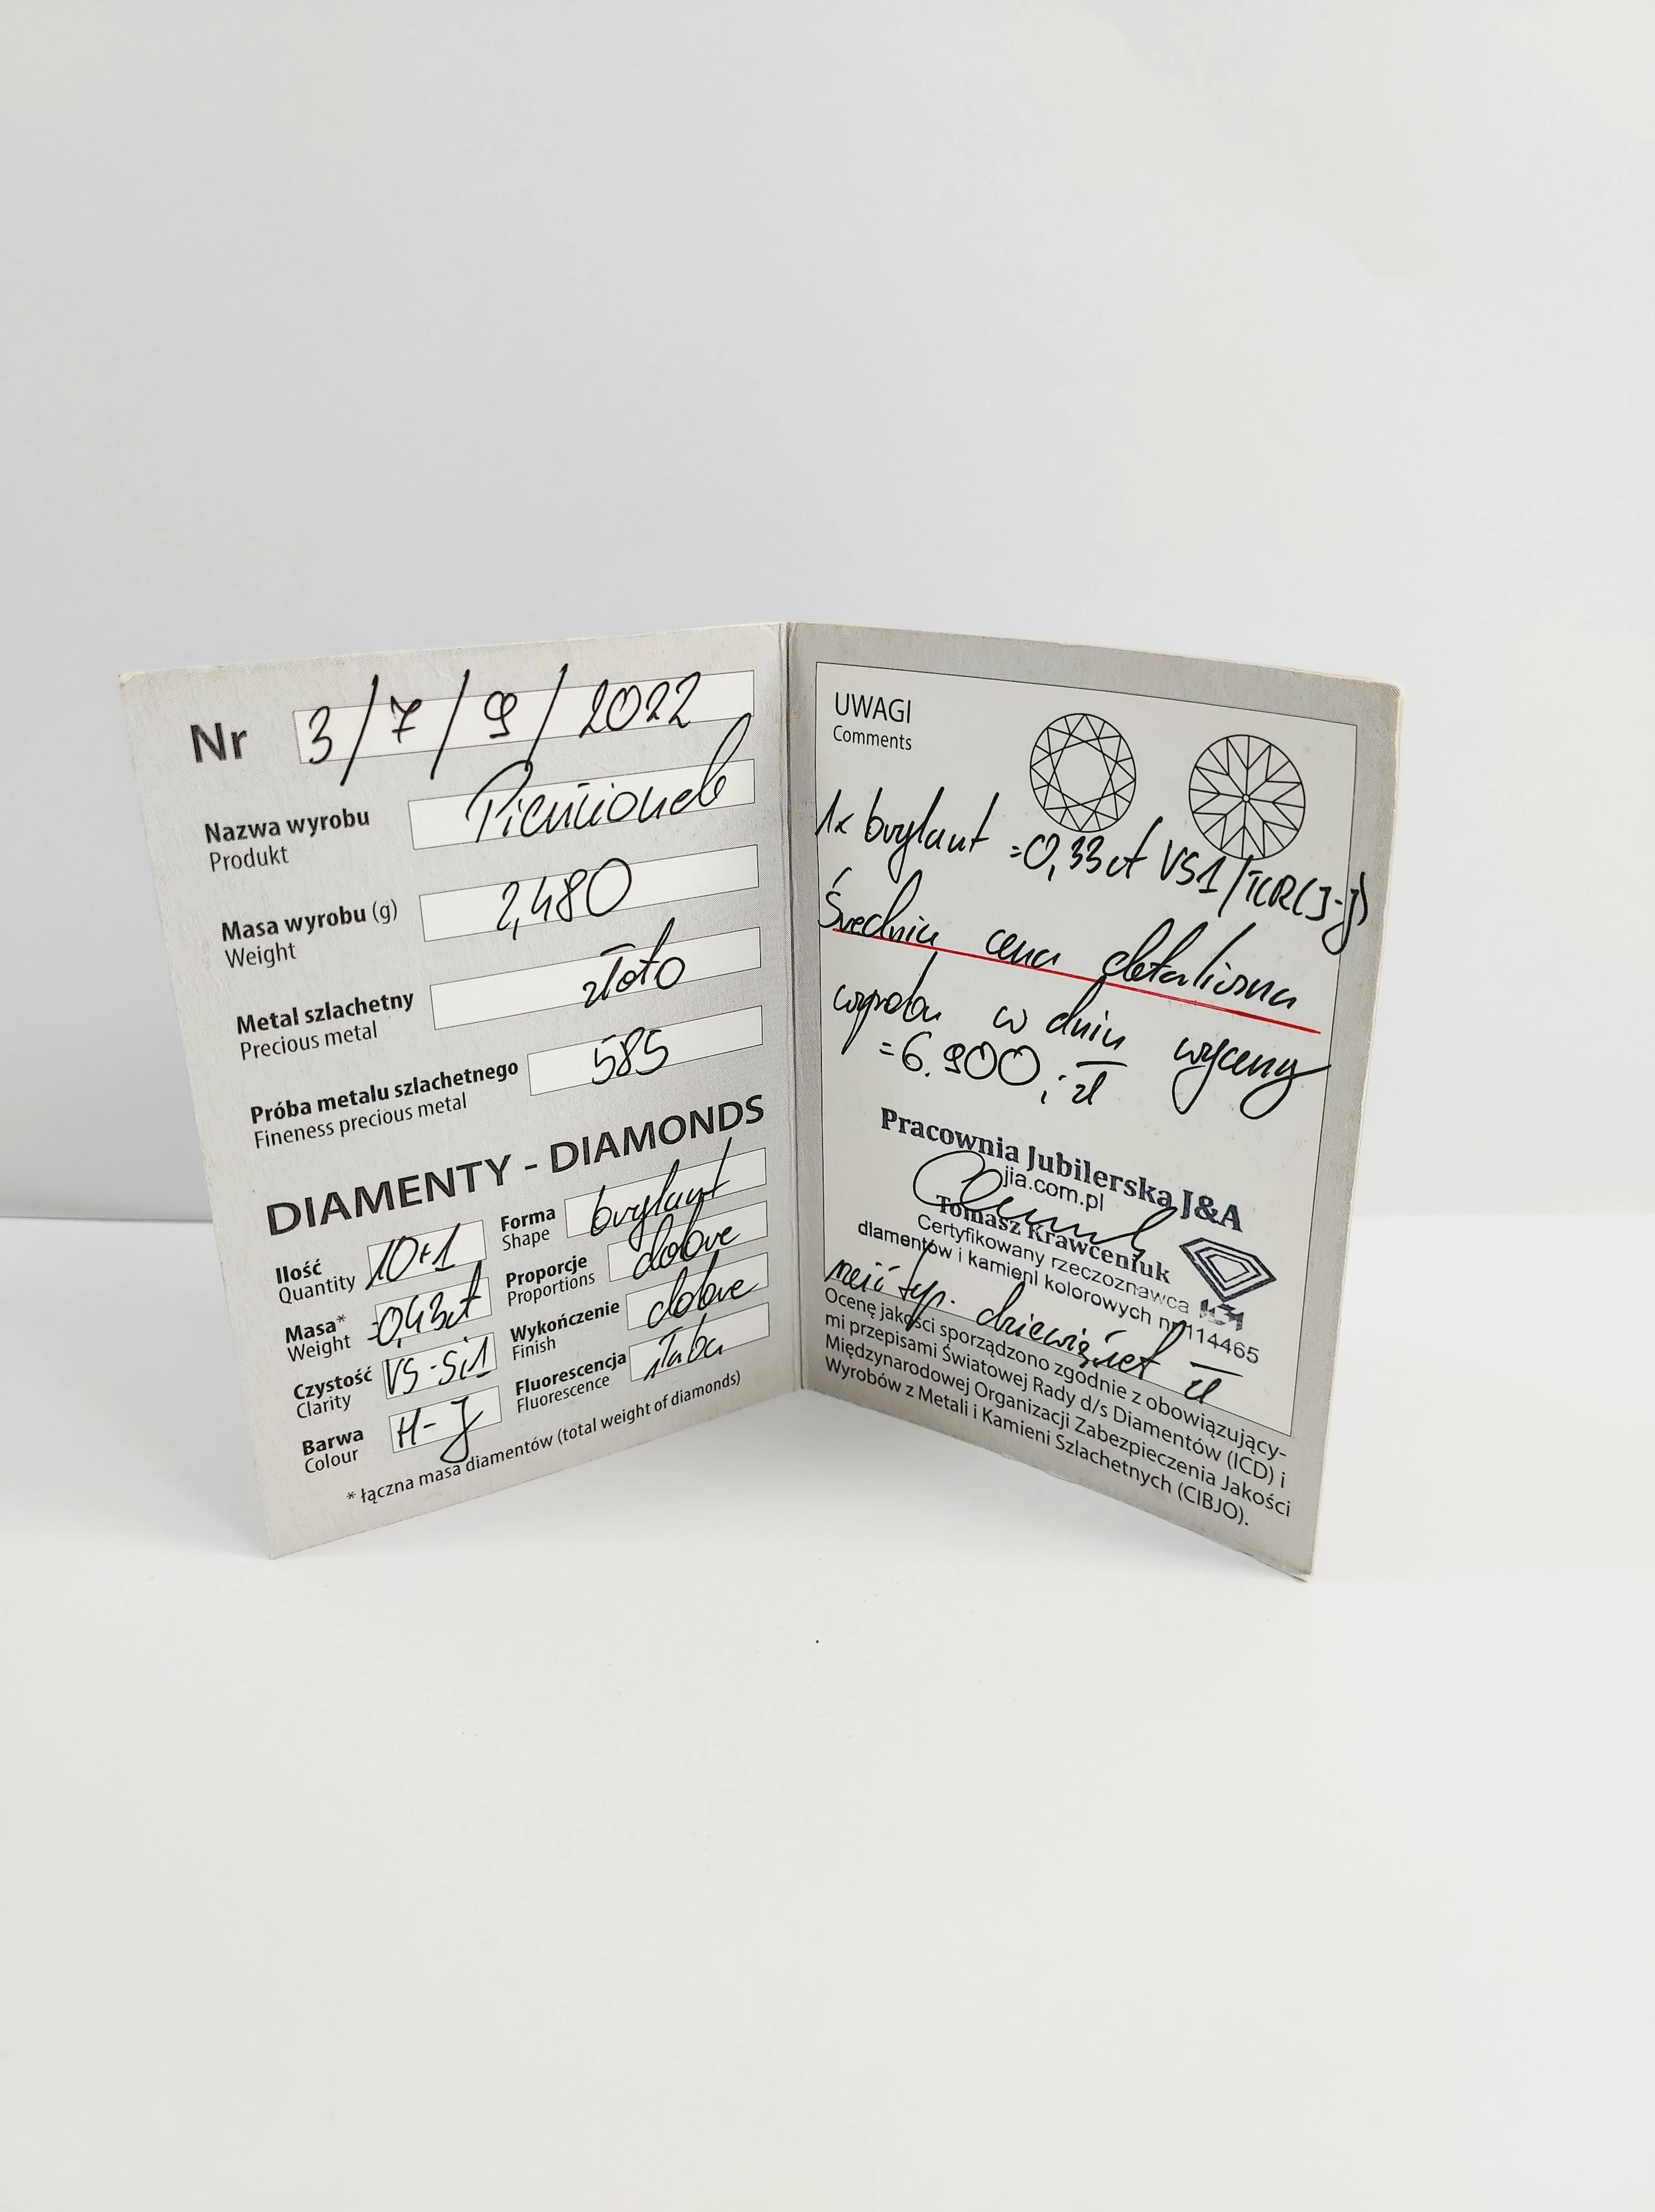 Nr 3/7/9/2022
Nazwa wyrobu Pierścionek
Produkt
Masa wyrobu (g) 2,480
Weight
Metal szlachetny złoto
Precious metal
Próba metalu szlachetnego 585
Fineness precious metal
DIAMENTY - DIAMONDS
Ilość 10+1
Quantity
Masa* =0,43ct
Weight
Czystość VS-Si1
Clarity
Barwa H-J
Colour
Forma brylant
Shape
Proporcje dobre
Proportions
Wykończenie dobre
Finish
Fluorescencja słaba
Fluorescence
* łączna masa diamentów (total weight of diamonds)
UWAGI
Comments
1x brylant =0,33ct VS1/TCR(I-J)
Średnia cena detaliczna
wyrobu w dniu wyceny
=6.900,- zł
Pracownia Jubilerska J&A
jia.com.pl
Tomasz Krawceniuk
Certyfikowany rzeczoznawca
diamentów i kamieni kolorowych nr 114465
sześć tyś. dziewięćset zł
Ocenę jakości sporządzono zgodnie z obowiązujący-
mi przepisami Światowej Rady d/s Diamentów (ICD) i
Międzynarodowej Organizacji Zabezpieczenia Jakości
Wyrobów z Metali i Kamieni Szlachetnych (CIBJO).